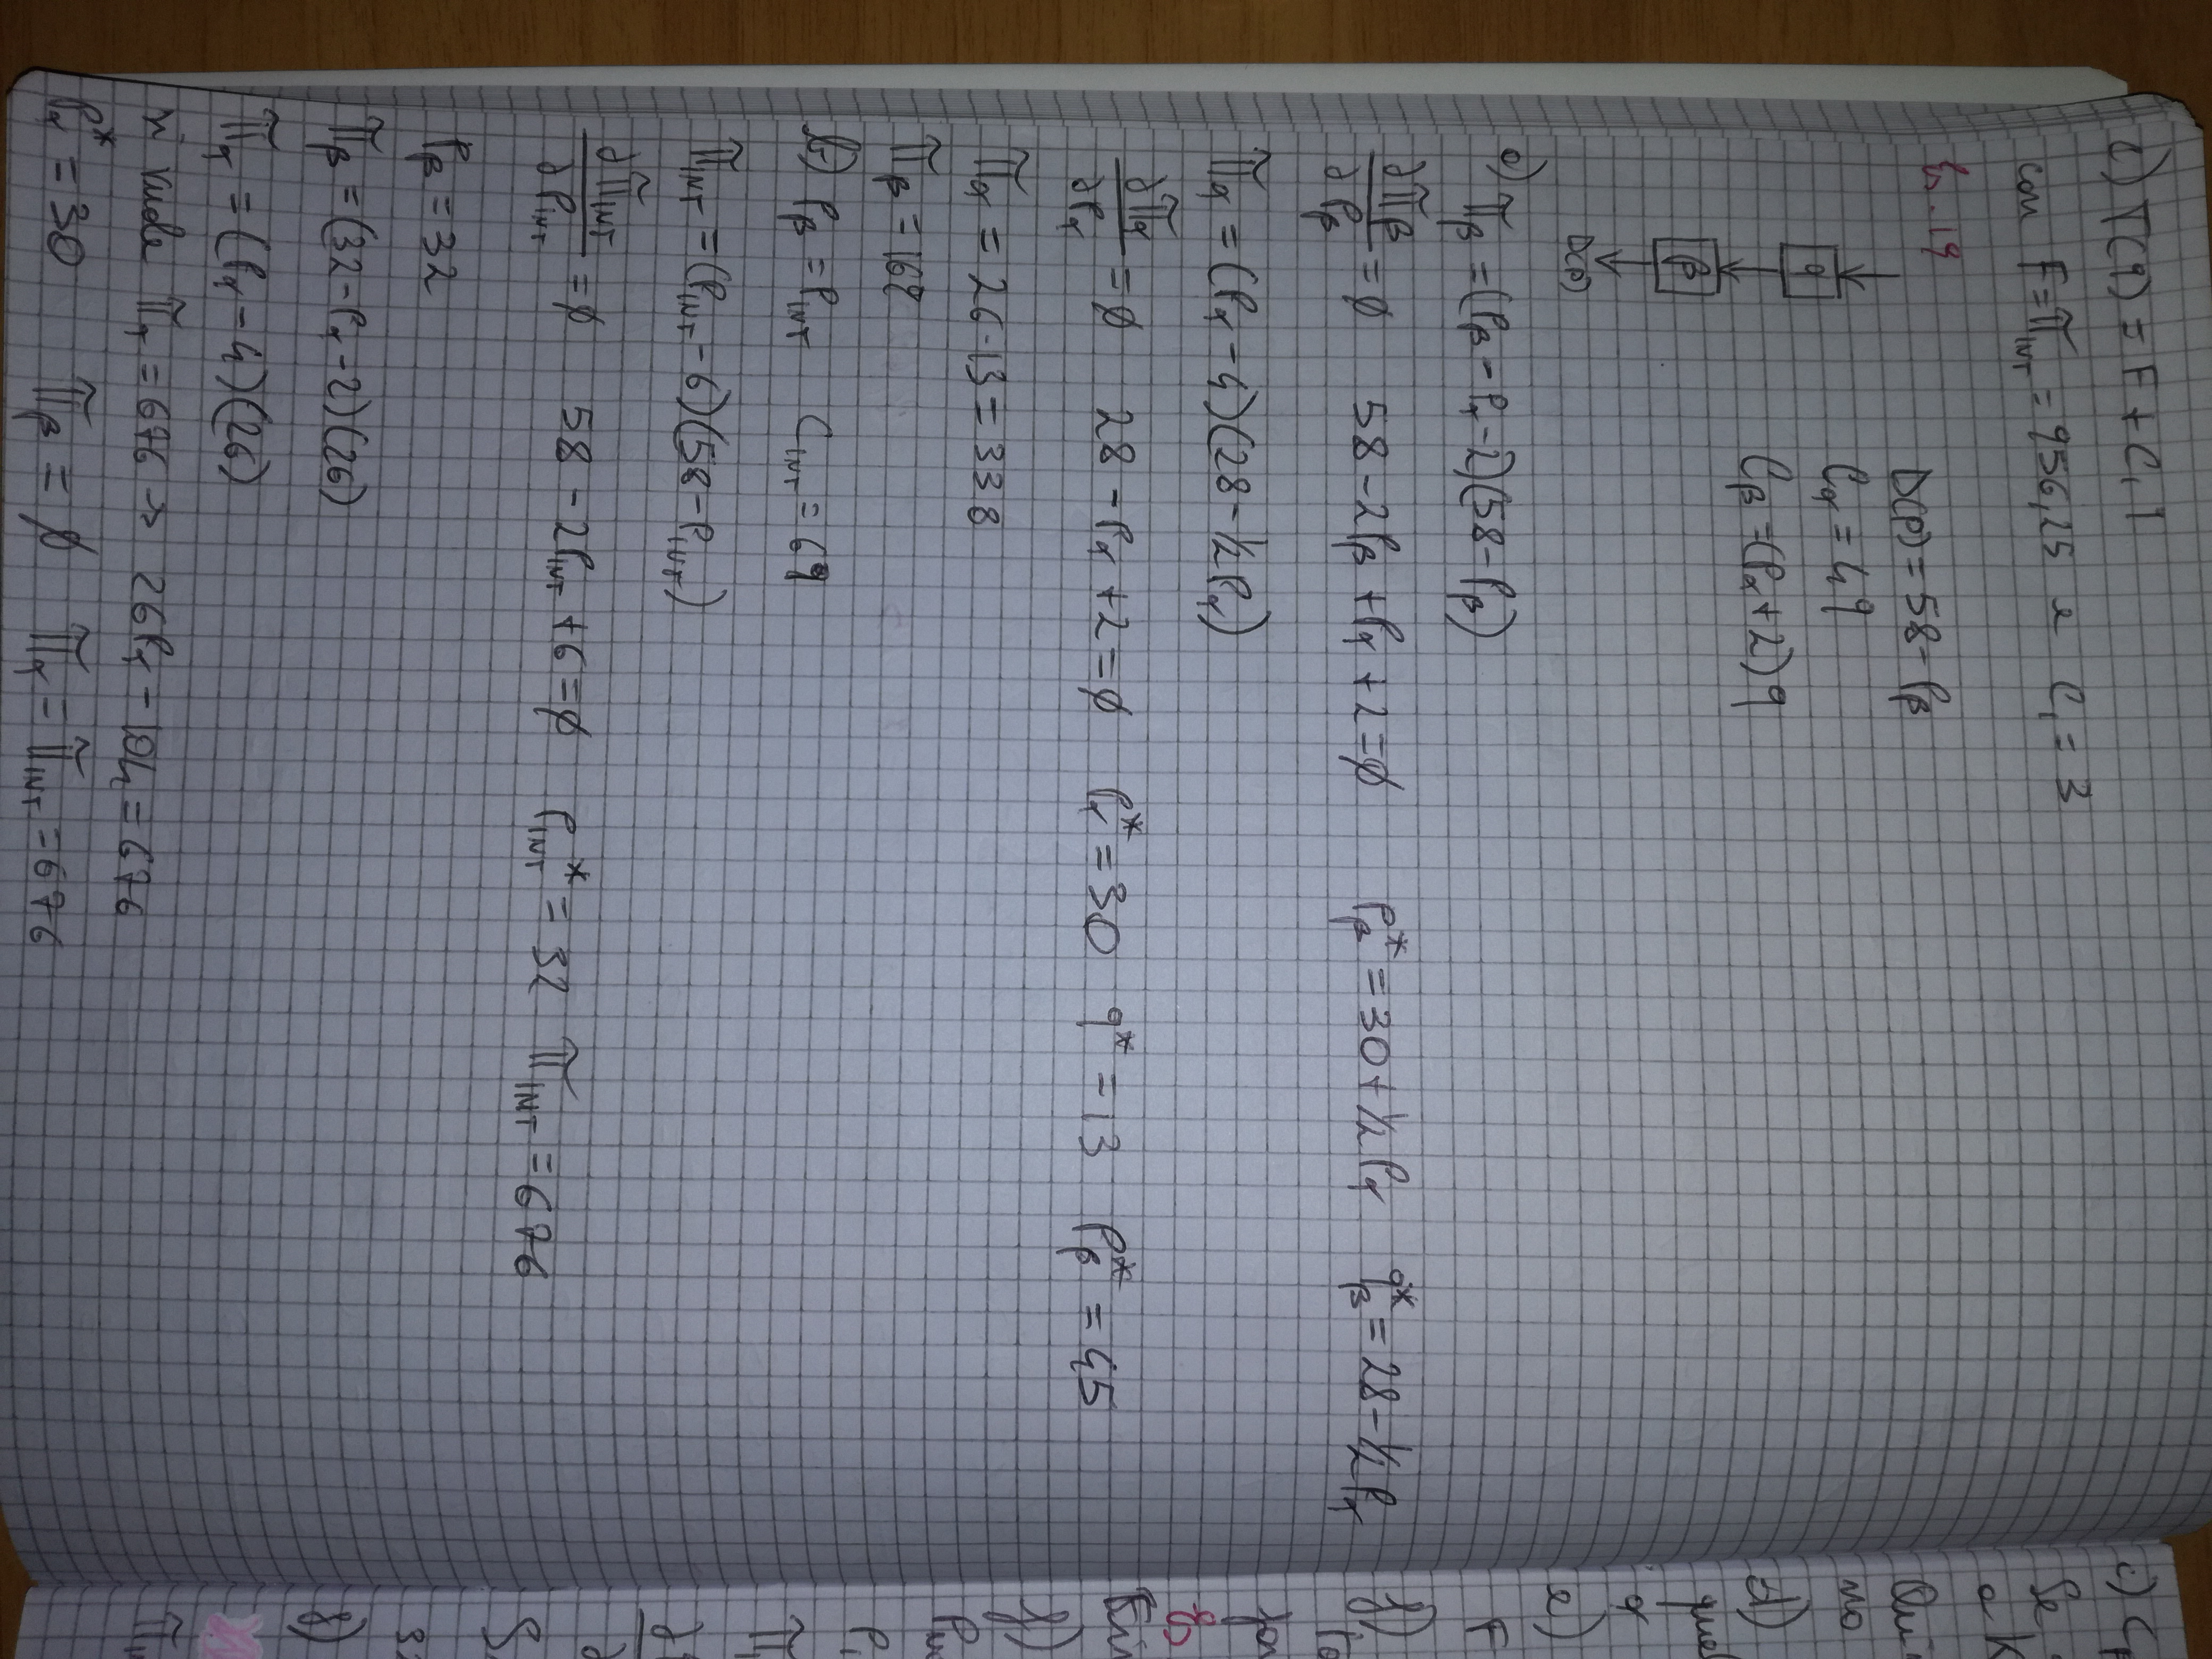 c) T(q) = F + C₁ 1
con F = π_INT = 956,25 e C₁ = 3
Es. 19
D(p) = 58 - P_β
C_α = 4q
α
C_β = (P_α + 2) q
β
D(p)
a) π_β = (P_β - P_α - 2)(58 - P_β)
∂π_β/∂P_β = ∅ 58 - 2P_β + P_α + 2 = ∅ P_β* = 30 + 1/2 P_α q_β* = 28 - 1/2 P_α
π_α = (P_α - 4)(28 - 1/2 P_α)
∂π_α/∂P_α = ∅ 28 - P_α + 2 = ∅ P_α* = 30 q* = 13 P_β* = 45
π_α = 26·13 = 338
π_β = 169
b) P_β = P_INT C_INT = 6q
π_INT = (P_INT - 6)(58 - P_INT)
∂π_INT/∂P_INT = ∅ 58 - 2P_INT + 6 = ∅ P_INT* = 32 π_INT = 676
P_β = 32
π_β = (32 - P_α - 2)(26)
π_α = (P_α - 4)(26)
si vuole π_α = 676 → 26P_α - 104 = 676
P_α* = 30 π_β = ∅ π_α = π_INT = 676
c) C
Se
a K
Qui
no
d)
que
α
e)
F
f)
Es
f)
P
P
π
∂
∂
S
32
f)
π